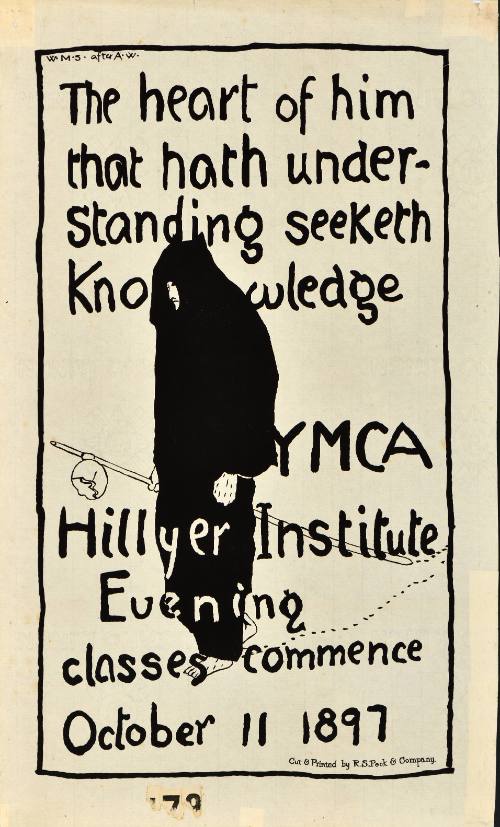 W·M·S· after A·W·
The heart of him
that hath under-
standing seeketh
Knowledge
YMCA
Hillyer Institute
Evening
classes commence
October 11 1897
Cut & Printed by R.S. Peck & Company.
179